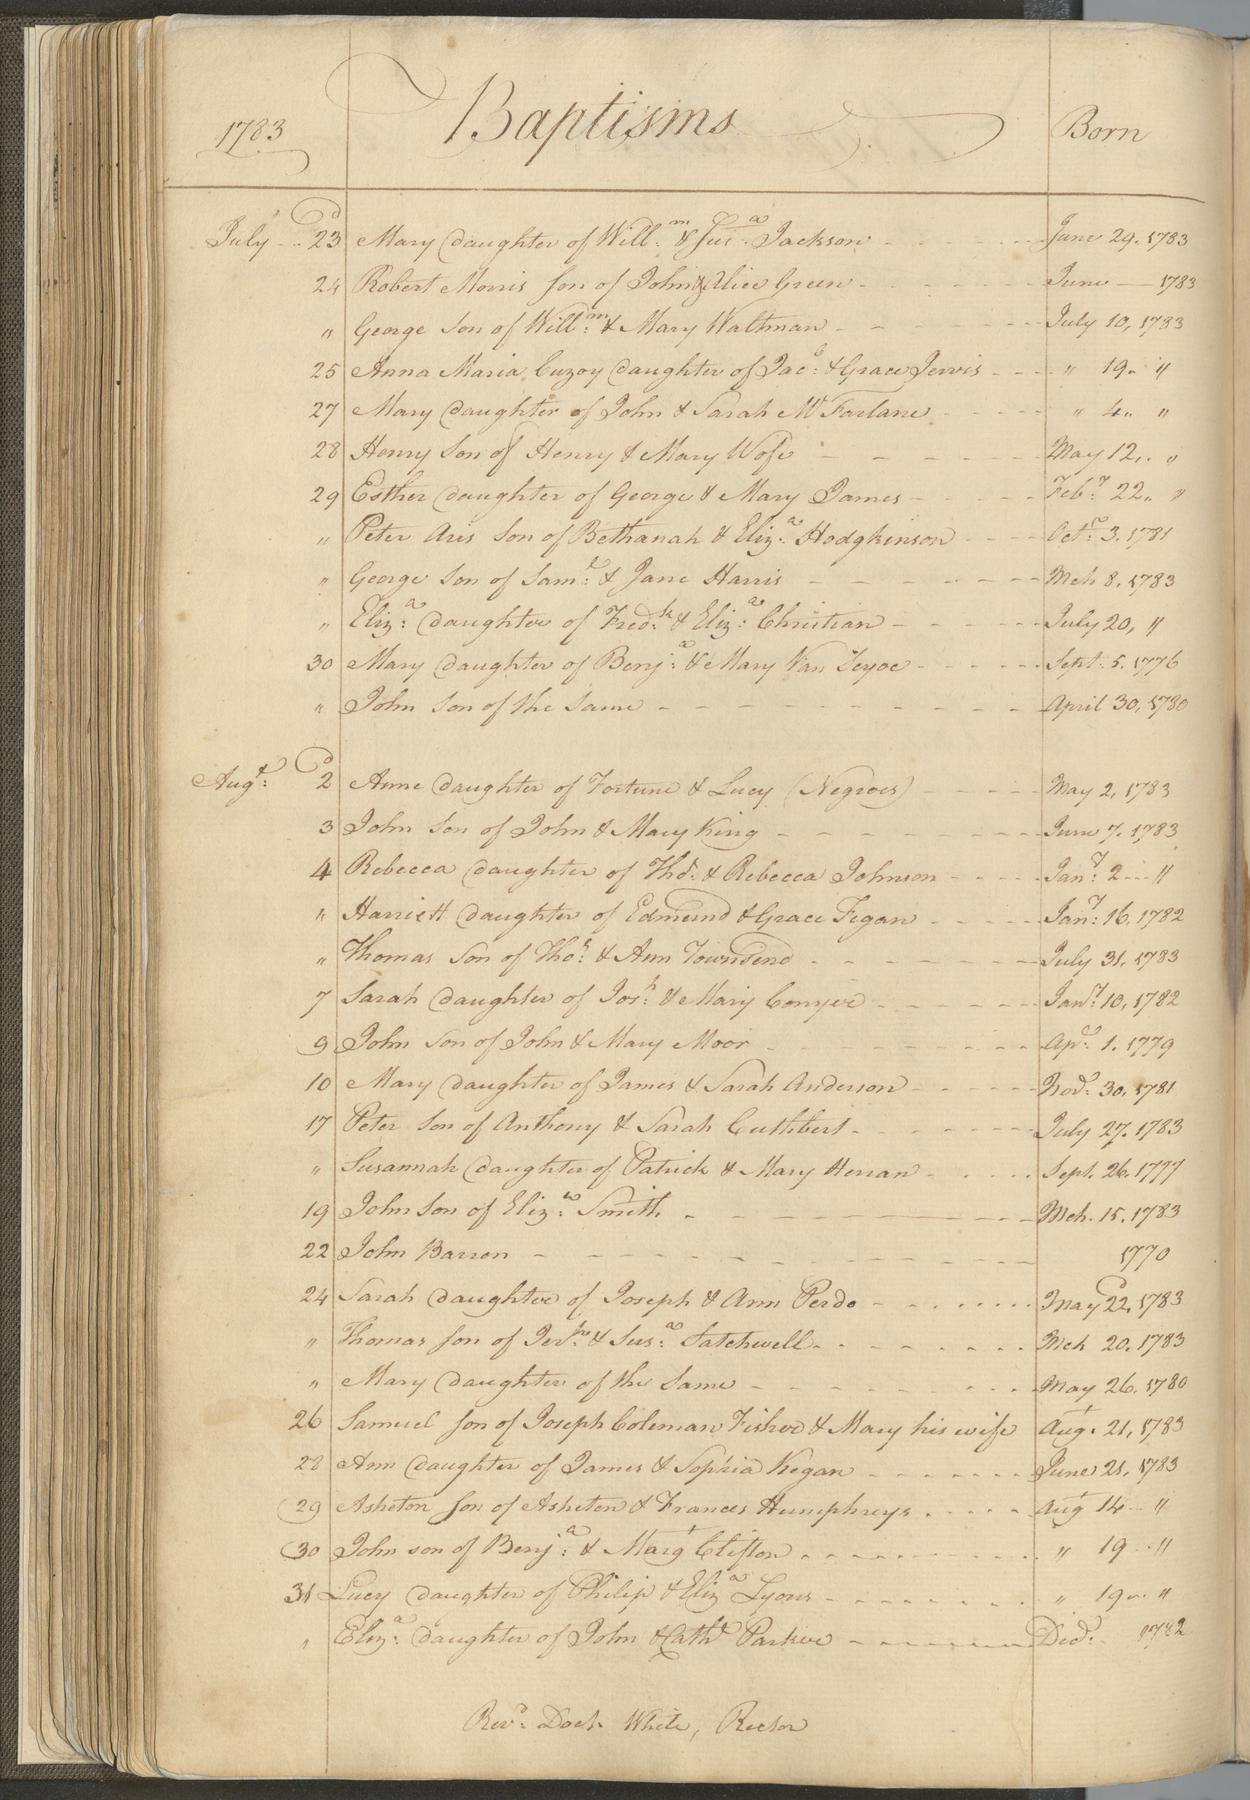 1783 Baptisms Born
July 23 Mary daughter of Will.m & Sus.a Jackson June 29. 1783
24 Robert Morris Son of John & Alice Green June — 1783
" George Son of Will.m & Mary Waltman July 10, 1783
25 Anna Maria Cuzoy daughter of Jac.b & Grace Jervis " 19. "
27 Mary daughter of John & Sarah McFarlane " 4. "
28 Henry Son of Henry & Mary May 12. "
29 Esther daughter of George & Mary James Feb.y 22. "
" Peter Aris Son of Bethanah & Eliz.a Hodgkinson Oct.r 3. 1781
" George Son of Sam.l & Jane Harris Mch 8. 1783
" Eliz.a daughter of Fred.k & Eliz.a Christian July 20, "
30 Mary daughter of Benj.a & Mary Van Sept. 5. 1776
" John Son of the Same April 30, 1780
Aug.t 2 Anne daughter of Fortune & Lucy (Negroes) May 2, 1783
3 John Son of John & Mary King June 7. 1783
4 Rebecca daughter of Tho.s & Rebecca Johnson Jan.y 2 "
" Harriett daughter of Edmund & Grace Fegan Jan.y 16. 1782
" Thomas Son of Tho.s & Ann Townsend July 31. 1783
7 Sarah daughter of Jos.h & Mary Conyer Jan.y 10, 1782
9 John Son of John & Mary Moor Ap.l 1. 1779
10 Mary daughter of James & Sarah Anderson Nov.r 30, 1781
17 Peter Son of Anthony & Sarah Cuthbert July 27. 1783
" Susannah daughter of Patrick & Mary Herran Sept. 26. 1777
19 John Son of Eliz.a Smith Mch. 15. 1783
22 John Barron 1770
24 Sarah daughter of Joseph & Ann Perdo May 22, 1783
" Thomas Son of & Sus.a Satchwell Mch 20. 1783
" Mary daughter of the Same May 26. 1780
26 Samuel Son of Joseph Coleman Fisher & Mary his wife Aug. 21, 1783
28 Ann daughter of James & Sophia Kegan June 21, 1783
29 Asheton Son of Asheton & Frances Humphreys Augt 14 "
30 John son of Benj.a & Margt Clifton " 19 "
31 Lucy daughter of Philip & Eliz.a Lyons " 19 "
" Eliz.a daughter of John & Cath Parker 1782
Rev.d Doct. White, Rector